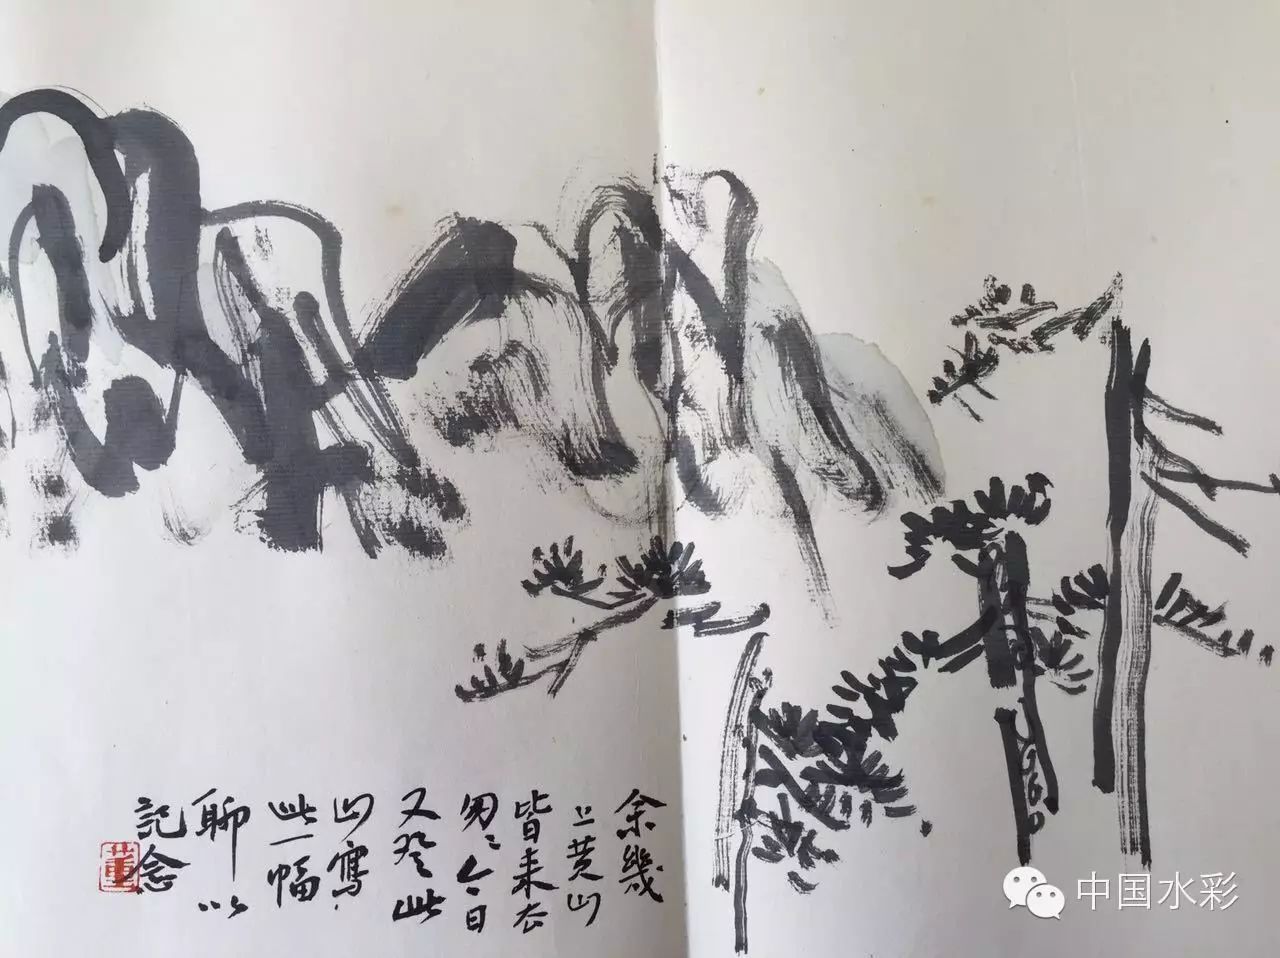 余幾
上黄山
皆来去
匆〻今日
又登此
山寫
此一幅
聊以
記念
董
中国水彩